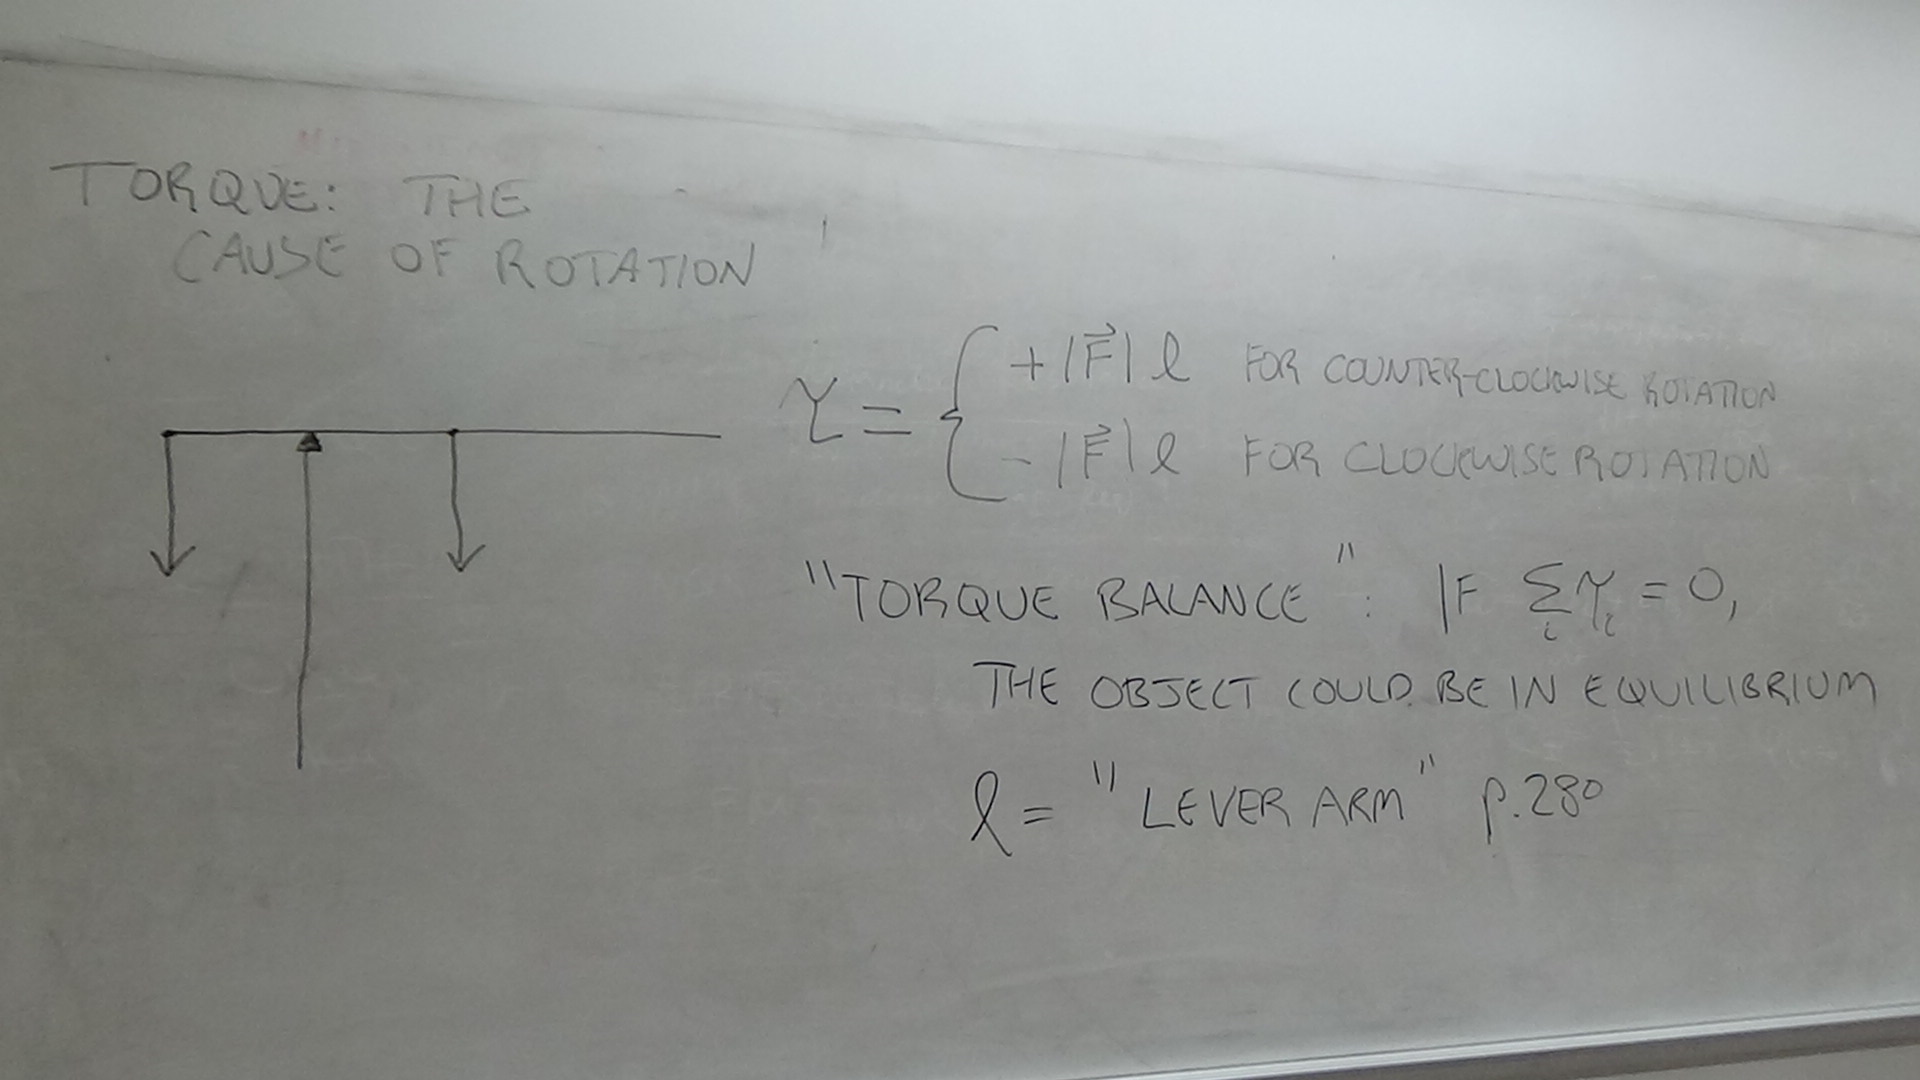 TORQUE: THE
CAUSE OF ROTATION
τ = { +|F⃗| ℓ FOR COUNTER-CLOCKWISE ROTATION
-|F⃗| ℓ FOR CLOCKWISE ROTATION
"TORQUE BALANCE": IF Σ_i τ_i = 0,
THE OBJECT COULD BE IN EQUILIBRIUM
ℓ = "LEVER ARM" p.280